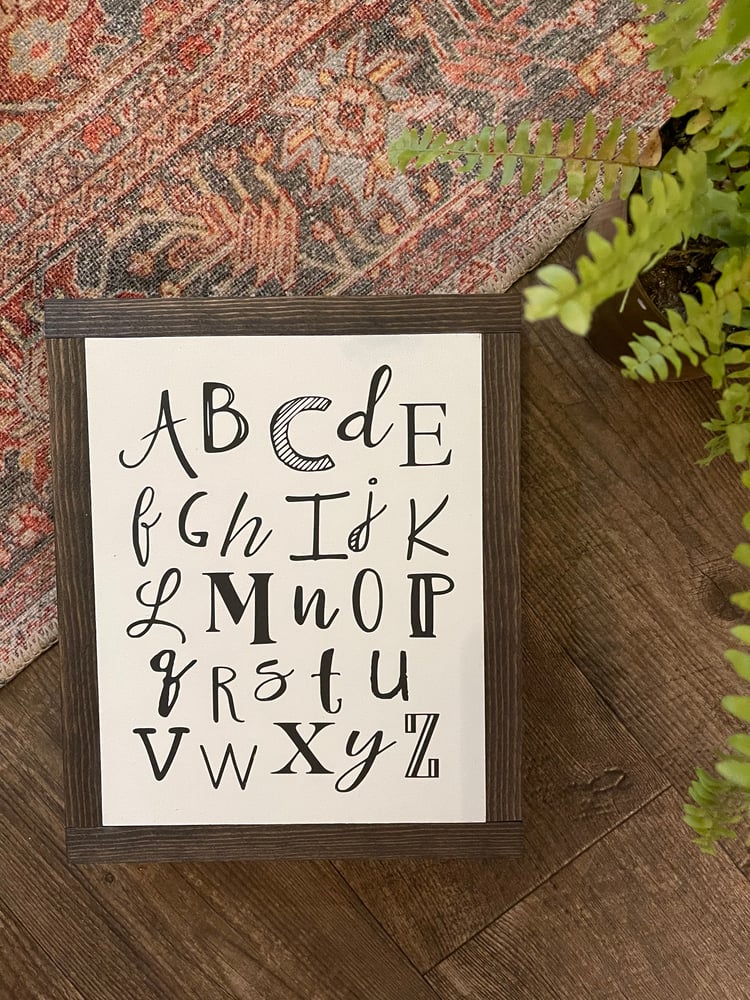 A B C d E
f G h I j K
L M n O P
q R s t u
V W X y Z